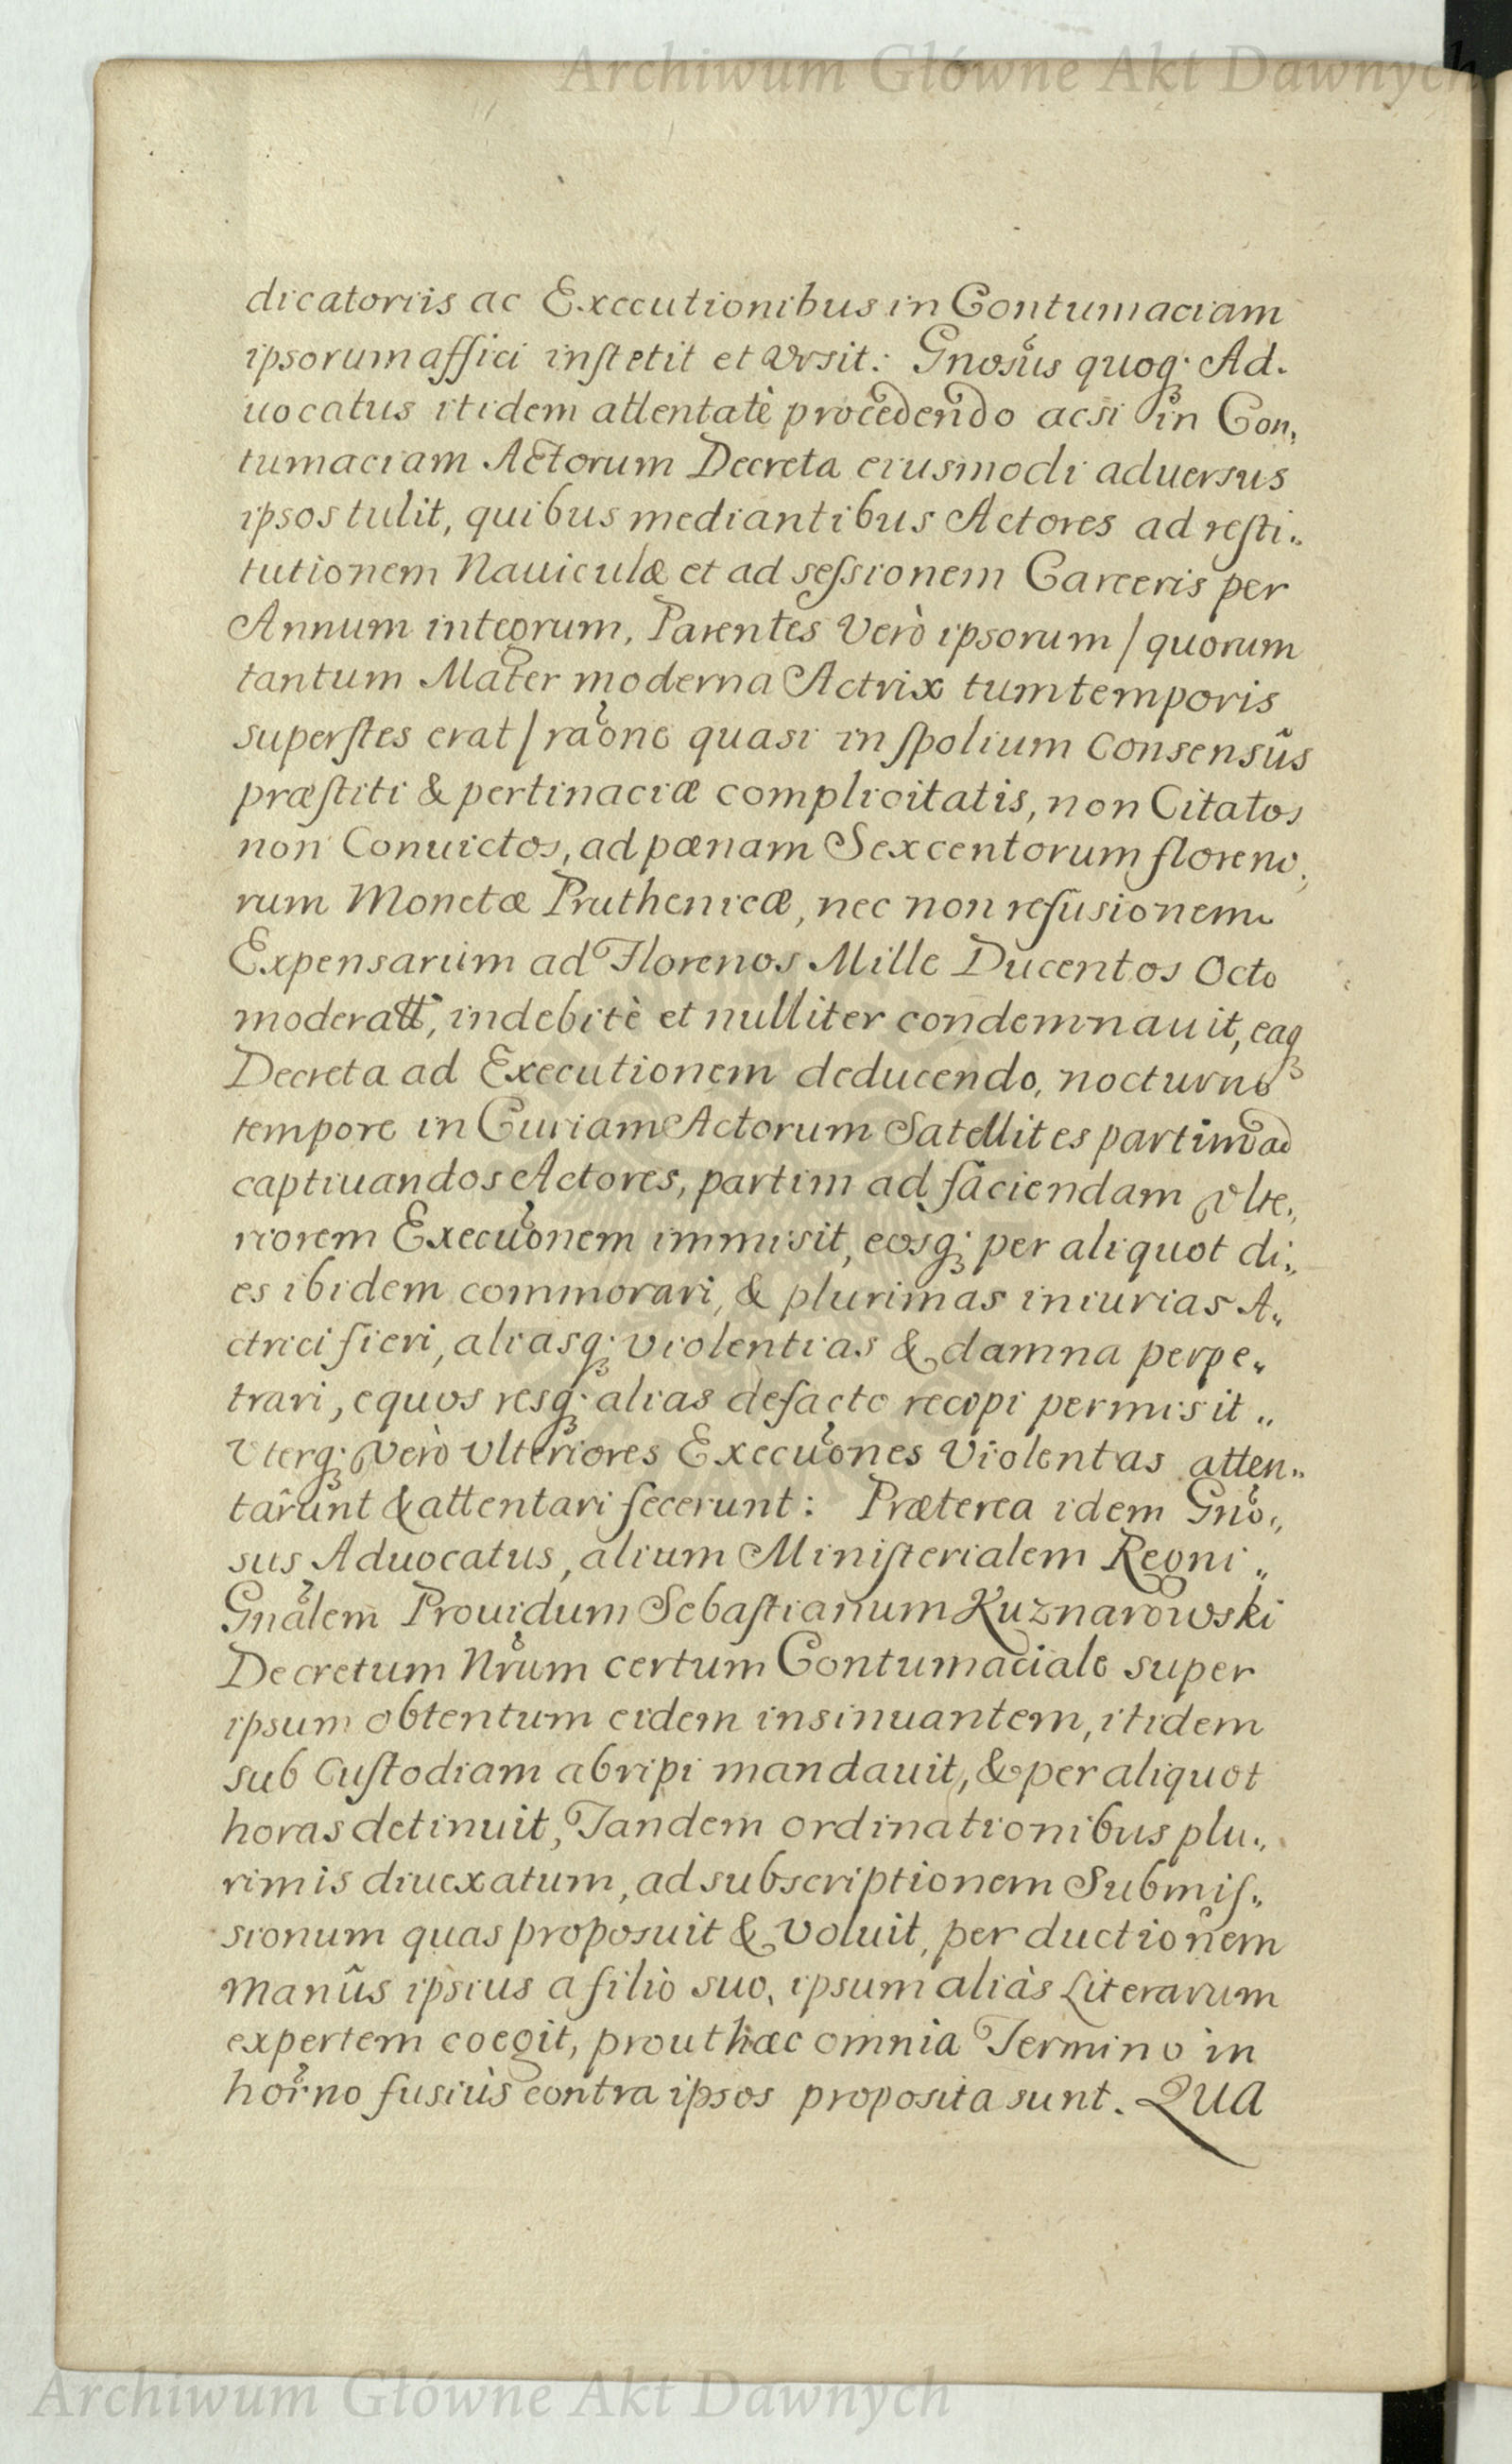 Archiwum Główne Akt Dawnych
dicatoriis ac Executionibus in Contumaciam
ipsorum affici inſtetit et Vrsit: Gnosus quoq; Ad.
uocatus itidem attentatè procedendo acsi in Con„
tumaciam Actorum Decreta eiusmodi aduersus
ipsos tulit, quibus mediantibus Actores ad reſti„
tutionem Nauiculæ et ad seſsionem Carceris per
Annum integrum, Parentes Verò ipsorum / quorum
tantum Mater moderna Actrix tum temporis
superſtes erat / raone quasi in ſpolium Consensûs
præſtiti & pertinaciæ complicitatis, non Citatos
non Conuictos, ad pœnam Sexcentorum floreno„
rum Monetæ Pruthenicæ, nec non refusionem
Expensarum ad Florenos Mille Ducentos Octo
moderatt, indebitè et nulliter condemnauit, eaq;
Decreta ad Executionem deducendo, nocturno
tempore in Curiam Actorum Satellites partim ad
captiuandos Actores, partim ad faciendam Vlte„
riorem Execuonem immisit, eosq; per aliquot di„
es ibidem commorari, & plurimas iniurias A„
ctrici fieri, aliasq; violentias & damna perpe„
trari, equos resq; alias defacto recipi permisit„
Vterq; Verò Vlteriores Execuones Violentas atten„
târunt & attentari fecerunt: Præterea idem Gno„
sus Aduocatus, alium Miniſterialem Regni„
Gnalem Prouidum Sebaſtianum Kuznarowski
Decretum Nrum certum Contumaciale super
ipsum obtentum eidem insinuantem, itidem
sub Cuſtodiam abripi mandauit, & per aliquot
horas detinuit, Tandem ordinationibus plu„
rimis diuexatum, ad subscriptionem Submiſ„
sionum quas proposuit & Voluit, per ductionem
manûs ipsius a filiò suo, ipsum aliàs Literarum
expertem coegit, prout hæc omnia Termino in
horno fusiùs contra ipsos proposita sunt. QUA
Archiwum Główne Akt Dawnych